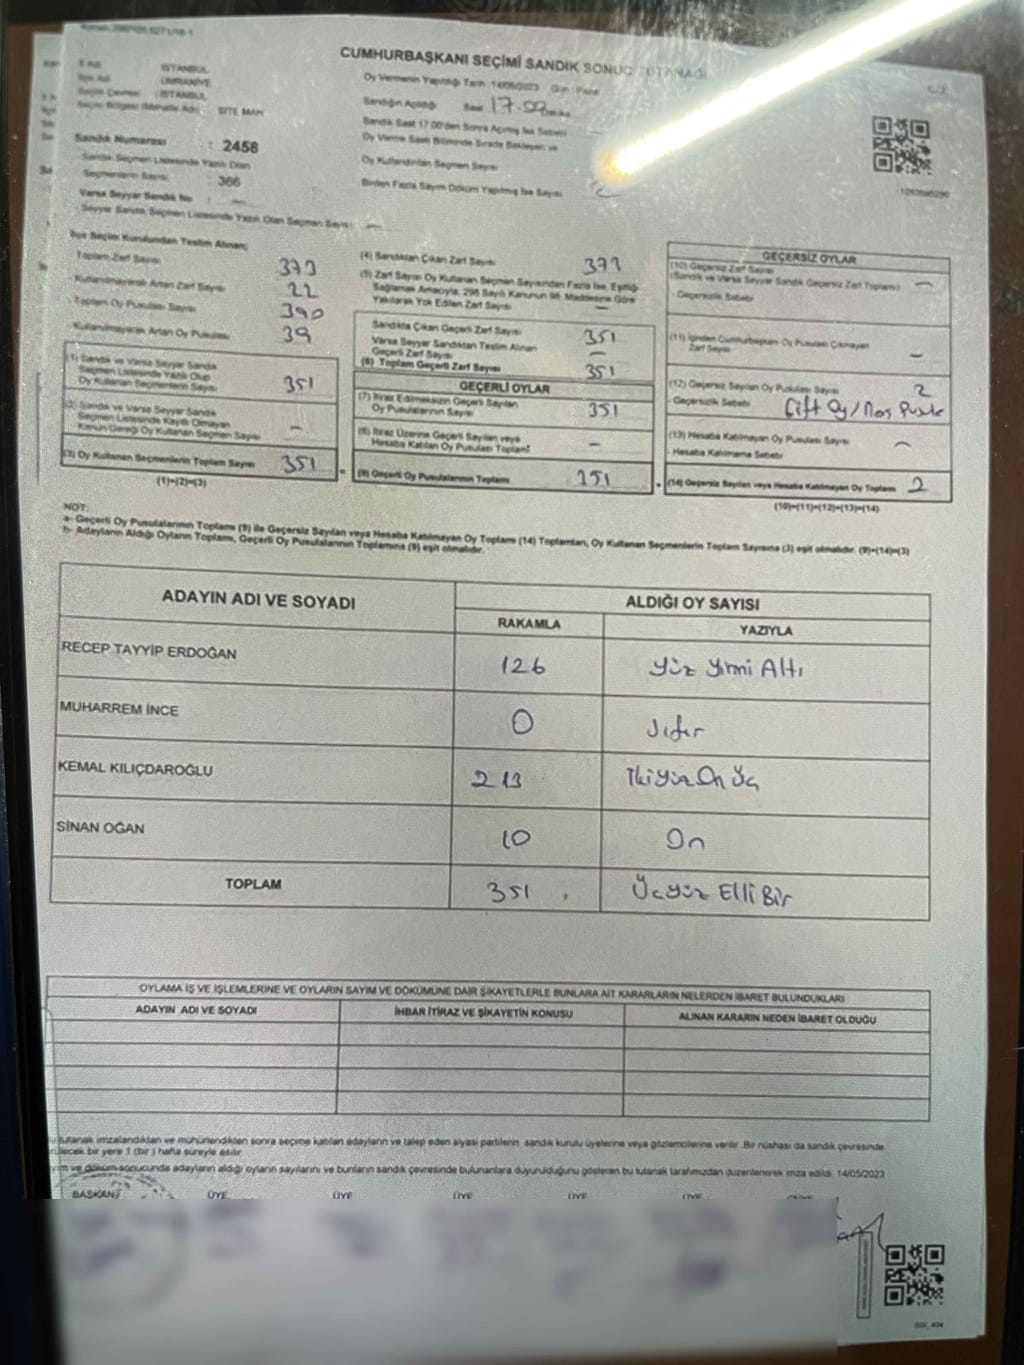 CUMHURBAŞKANI SEÇİMİ SANDIK SONUÇ TUTANAĞI
İl Adı : İSTANBUL
İlçe Adı : ÜMRANİYE
Seçim Çevresi : İSTANBUL
Seçim Bölgesi (Mahalle Adı) : SITE MAH
Sandık Numarası : 2458
Sandık Seçmen Listesinde Yazılı Olan
Seçmenlerin Sayısı : 366
Varsa Seyyar Sandık No : —
Seyyar Sandık Seçmen Listesinde Yazılı Olan Seçmen Sayısı : —
Oy Vermenin Yapıldığı Tarih : 14/05/2023 Gün : Pazar
Sandığın Açıldığı Saat 17:00
Sandık Saat 17:00'den Sonra Açılmış İse Sebebi
Oy Verme Saati Bitiminde Sırada Bekleyen ve
Oy Kullandırılan Seçmen Sayısı
Birden Fazla Sayım Döküm Yapılmış İse Sayısı
İlçe Seçim Kurulundan Teslim Alınan;
Toplam Zarf Sayısı 373
Kullanılmayarak Artan Zarf Sayısı 22
Toplam Oy Pusulası Sayısı 390
Kullanılmayarak Artan Oy Pusulası 39
(1) Sandık ve Varsa Seyyar Sandık
Seçmen Listesinde Yazılı Olup
Oy Kullanan Seçmenlerin Sayısı 351
(2) Sandık ve Varsa Seyyar Sandık
Seçmen Listesinde Kayıtlı Olmayan
Kanun Gereği Oy Kullanan Seçmen Sayısı —
(3) Oy Kullanan Seçmenlerin Toplam Sayısı 351
(1)+(2)=(3)
(4) Sandıktan Çıkan Zarf Sayısı 373
(5) Zarf Sayısı Oy Kullanan Seçmen Sayısından Fazla İse, Eşitliği
Sağlamak Amacıyla, 298 Sayılı Kanunun 98. Maddesine Göre
Yakılarak Yok Edilen Zarf Sayısı —
Sandıkta Çıkan Geçerli Zarf Sayısı 351
Varsa Seyyar Sandıktan Teslim Alınan
Geçerli Zarf Sayısı —
(6) Toplam Geçerli Zarf Sayısı 351
GEÇERLİ OYLAR
(7) İtiraz Edilmeksizin Geçerli Sayılan
Oy Pusulalarının Sayısı 351
(8) İtiraz Üzerine Geçerli Sayılan veya
Hesaba Katılan Oy Pusulaları Toplamı —
(9) Geçerli Oy Pusulalarının Toplamı 351
GEÇERSİZ OYLAR
(10) Geçersiz Zarf Sayısı
(Sandık ve Varsa Seyyar Sandık Geçersiz Zarf Toplamı) —
Geçersizlik Sebebi
(11) İçinden Cumhurbaşkanı Oy Pusulası Çıkmayan
Zarf Sayısı —
(12) Geçersiz Sayılan Oy Pusulası Sayısı 2
Geçersizlik Sebebi Çift Oy/
(13) Hesaba Katılmayan Oy Pusulası Sayısı —
Hesaba Katılmama Sebebi
(14) Geçersiz Sayılan veya Hesaba Katılmayan Oy Toplamı 2
(10)+(11)+(12)+(13)=(14)
NOT:
a- Geçerli Oy Pusulalarının Toplamı (9) ile Geçersiz Sayılan veya Hesaba Katılmayan Oy Toplamı (14) Toplamları, Oy Kullanan Seçmenlerin Toplam Sayısına (3) eşit olmalıdır. (9)+(14)=(3)
b- Adayların Aldığı Oyların Toplamı, Geçerli Oy Pusulalarının Toplamına (9) eşit olmalıdır.
ADAYIN ADI VE SOYADI
ALDIĞI OY SAYISI
RAKAMLA YAZIYLA
RECEP TAYYİP ERDOĞAN 126 Yüz Yirmi Altı
MUHARREM İNCE 0 Sıfır
KEMAL KILIÇDAROĞLU 213 İkiyüz On Üç
SİNAN OĞAN 10 On
TOPLAM 351 Üçyüz Elli Bir
OYLAMA İŞ VE İŞLEMLERİNE VE OYLARIN SAYIM VE DÖKÜMÜNE DAİR ŞİKAYETLERLE BUNLARA AİT KARARLARIN NELERDEN İBARET BULUNDUKLARI
ADAYIN ADI VE SOYADI İHBAR İTİRAZ VE ŞİKAYETİN KONUSU ALINAN KARARIN NEDEN İBARET OLDUĞU
tutanak imzalandıktan ve mühürlendikten sonra seçime katılan adayların ve talep eden siyasi partilerin sandık kurulu üyelerine veya gözlemcilerine verilir. Bir nüshası da sandık çevresinde
bir yere 1 (bir) hafta süreyle asılır.
ve döküm sonucunda adayların aldığı oyların sayılarını ve bunların sandık çevresinde bulunanlara duyurulduğunu gösteren bu tutanak tarafımızdan düzenlenerek imza edildi. 14/05/2023
BAŞKAN ÜYE ÜYE ÜYE ÜYE ÜYE ÜYE